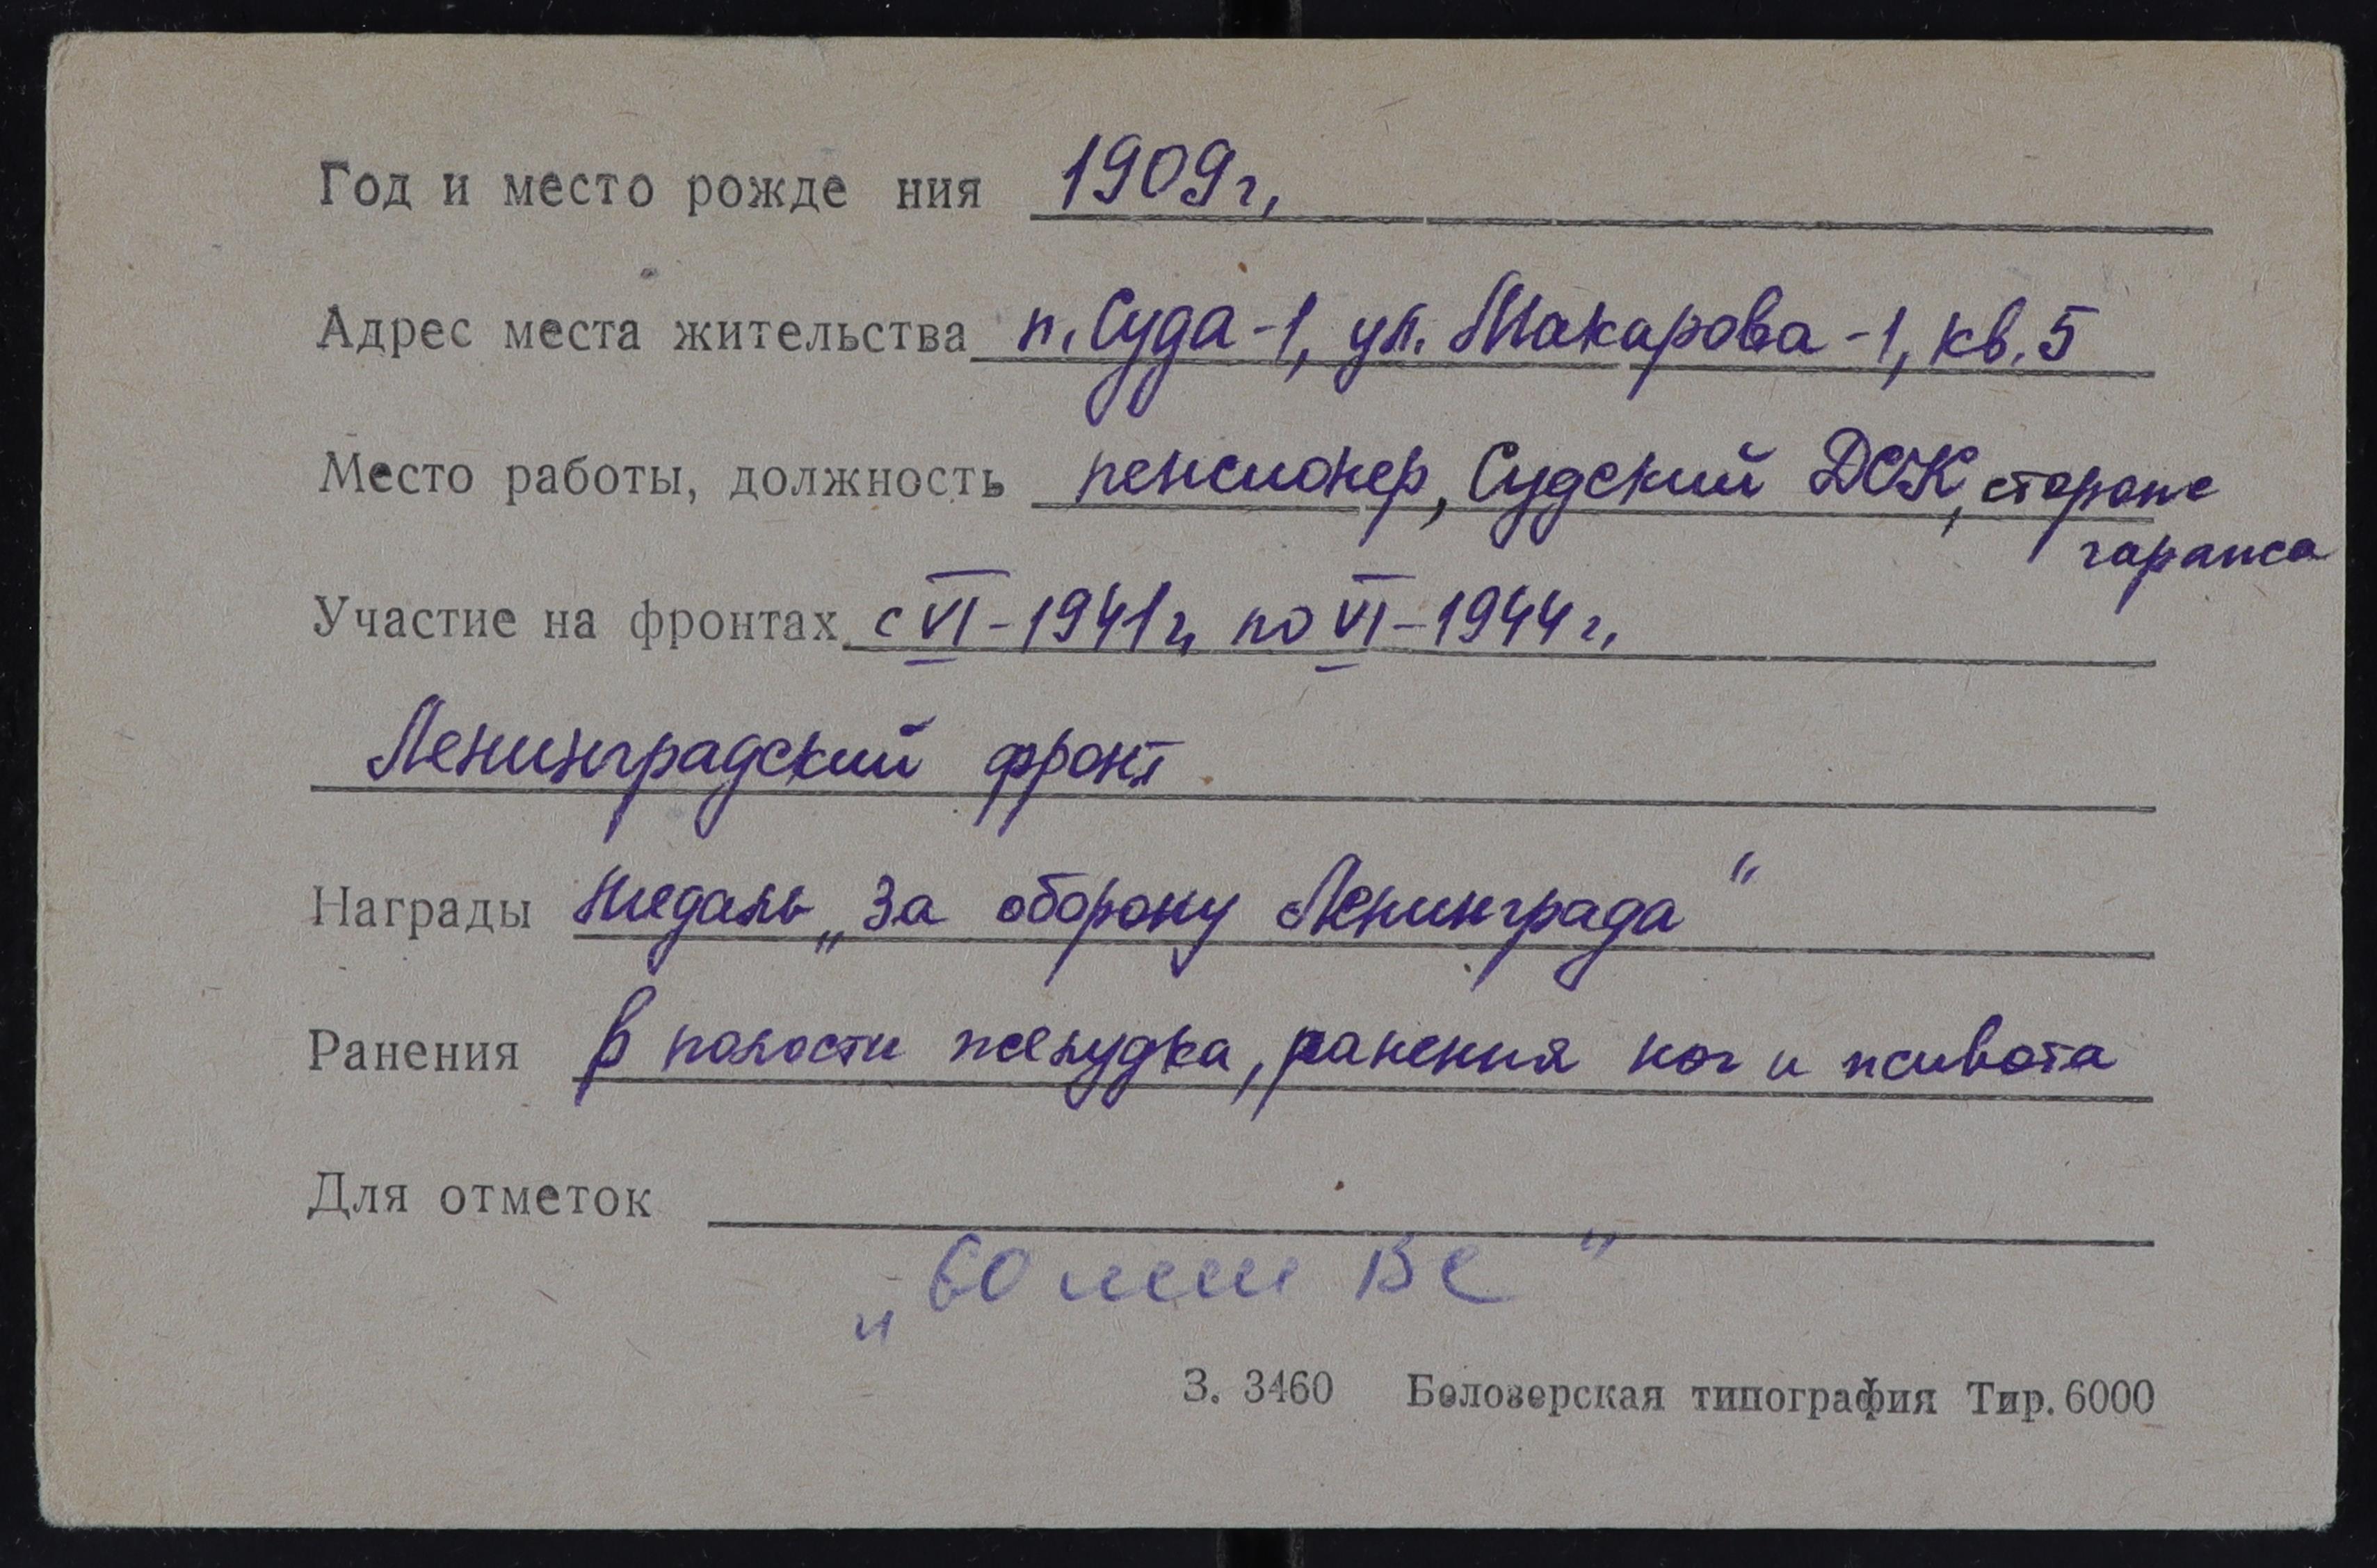 Год и место рожде ния 1909 г.
Адрес места жительства п. Суда-1, ул. Макарова-1, кв. 5
Место работы, должность пенсионер, Судский ДОК, сторож
гаража
Участие на фронтах с VI-1941 г. по VI-1944 г.
Ленинградский фронт
Награды медаль „За оборону Ленинграда"
Ранения в полости желудка, ранения ног и живота
Для отметок
„60 лет ВС"
З. 3460 Белозерская типография Тир. 6000